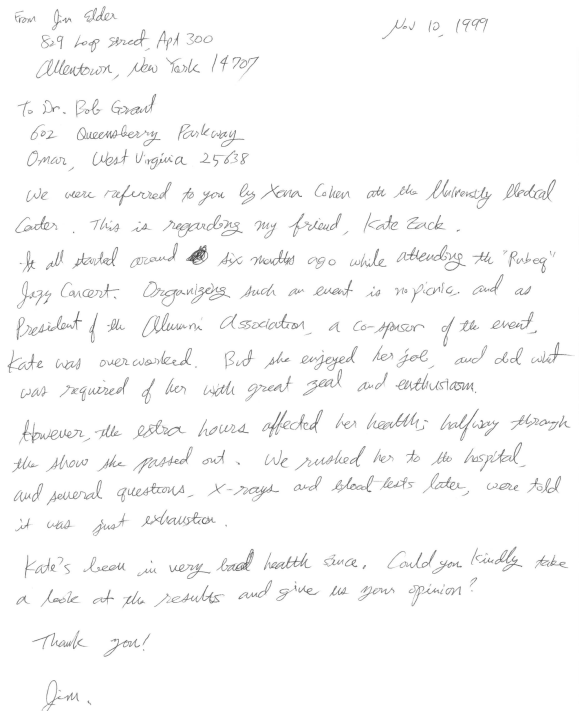 From Jim Elder
Nov 10, 1999
829 Loop Street, Apt 300
Allentown, New York 14707
To Dr. Bob Grant
602 Queensberry Parkway
Omar, West Virginia 25638
We were referred to you by Xena Cohen at the University Medical
Center. This is regarding my friend, Kate Zack.
It all started around six months ago while attending the "Rubeq"
Jazz Concert. Organizing such an event is no picnic, and as
President of the Alumni Association, a co-sponsor of the event,
Kate was overworked. But she enjoyed her job, and did what
was required of her with great zeal and enthusiasm.
However, the extra hours affected her health; halfway through
the show she passed out. We rushed her to the hospital,
and several questions, x-rays and blood tests later, were told
it was just exhaustion.
Kate's been in very bad health since. Could you kindly take
a look at the results and give us your opinion?
Thank you!
Jim.